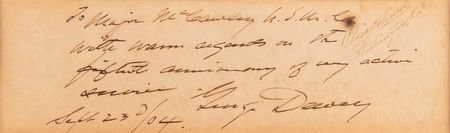 To Major McCawley U.S.M.C.
with warm regards on the
fiftieth anniversary of my active
service George Dewey
Sept. 23d/04.